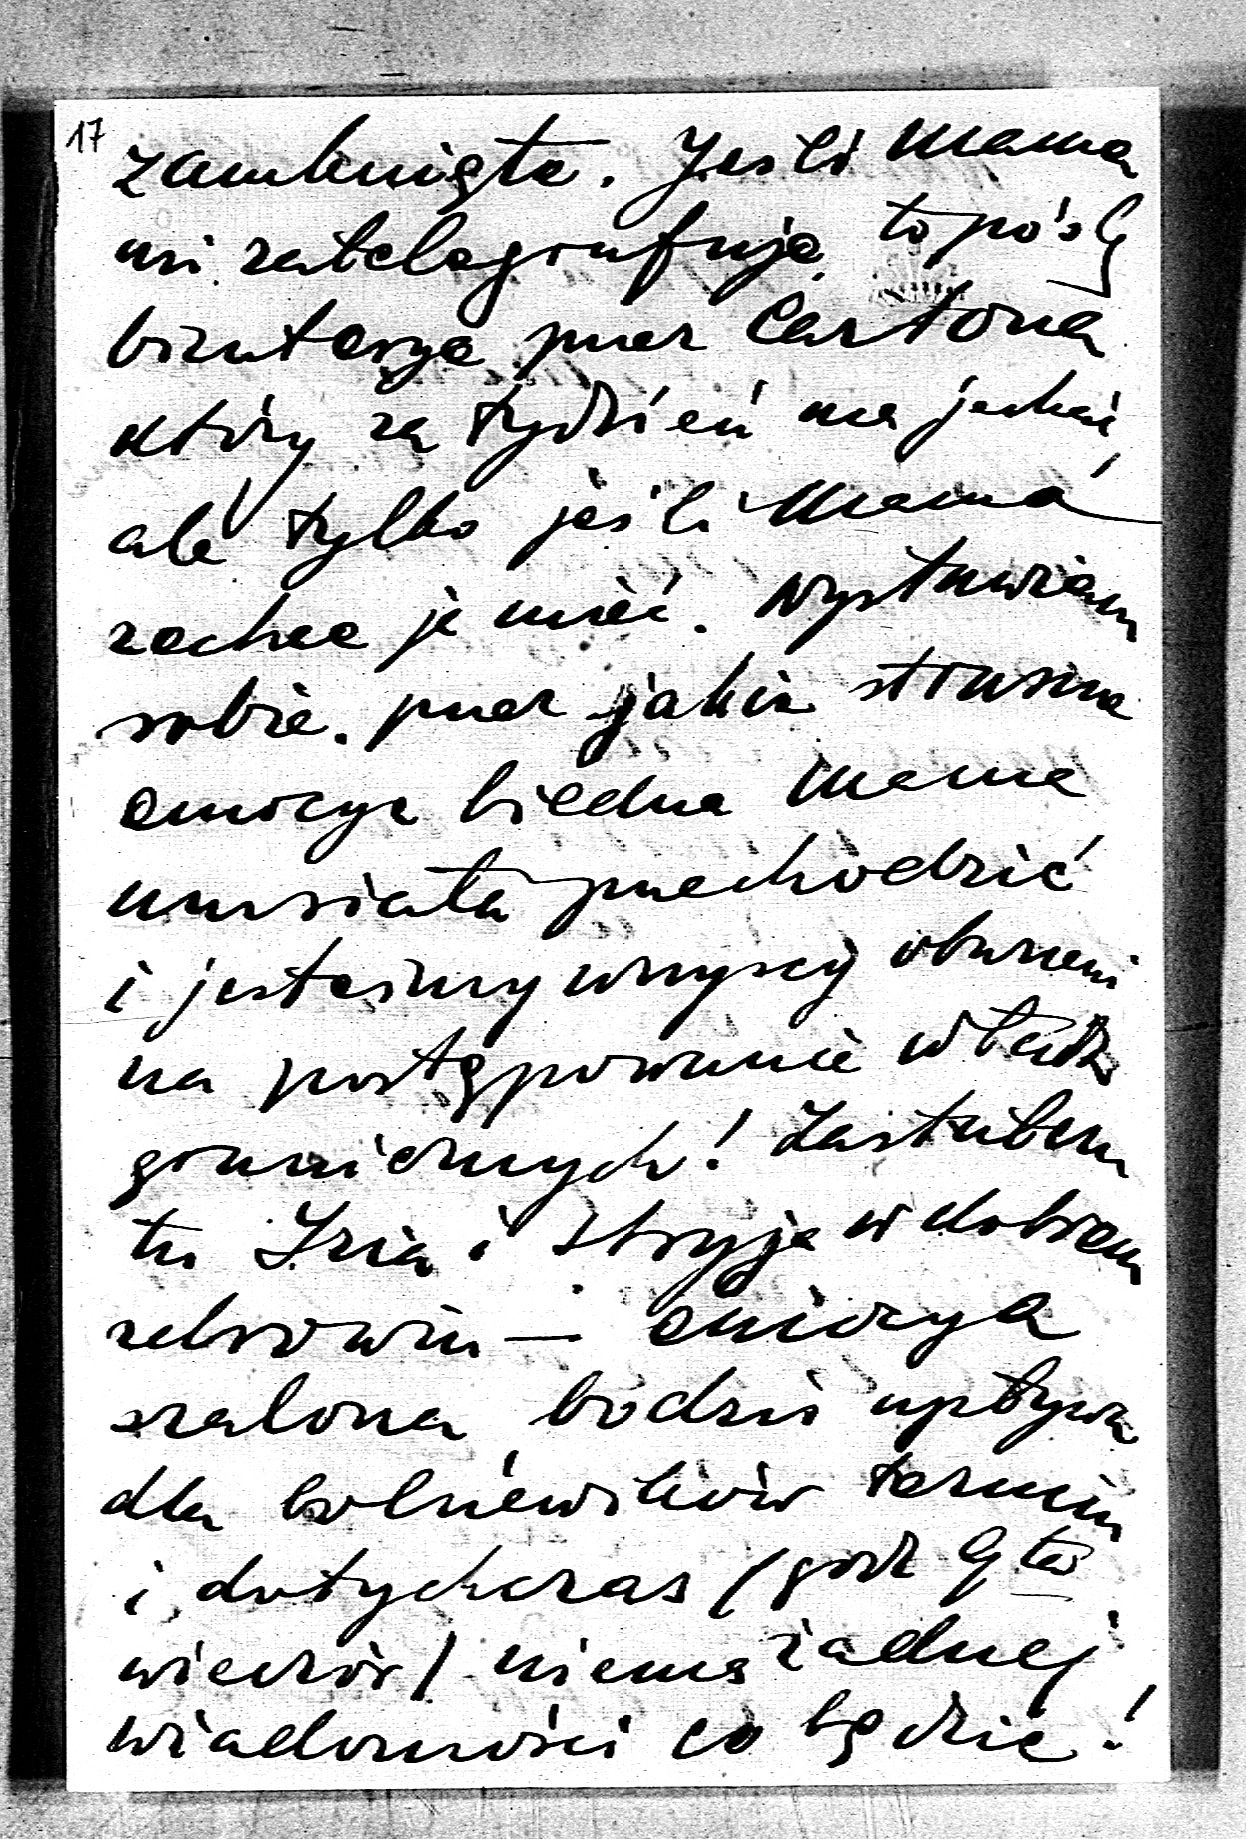 17
zamknięte. Jeśli Mama
mi zatelegrafuje to poślę
biżuterye przez Cartona
który za tydzień ma jechać,
ale tylko jeśli Mama
zechce je mieć. Wystawiam
sobie. przez jakie straszne
emocye biedna Mama
musiała przechodzić
i jesteśmy wszyscy oburzeni
na postępowanie władz
granicznych! Zastałem
tu Izia i Stryja w dobrem
zdrowiu — emocya
szalona bo dziś upływa
dla bolszewików termin
i dotychczas (godz 9ta
wieczór) niema żadnej
wiadomości co będzie!